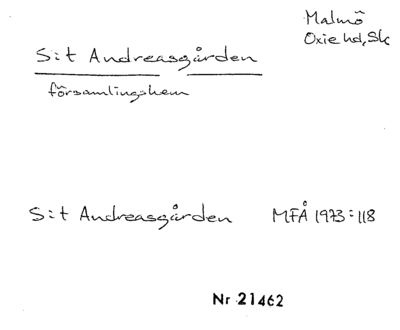 Malmö
Oxie hd, Sk
S:t Andreasgården
församlingshem
S:t Andreasgården MFÅ 1973:118
Nr 21462